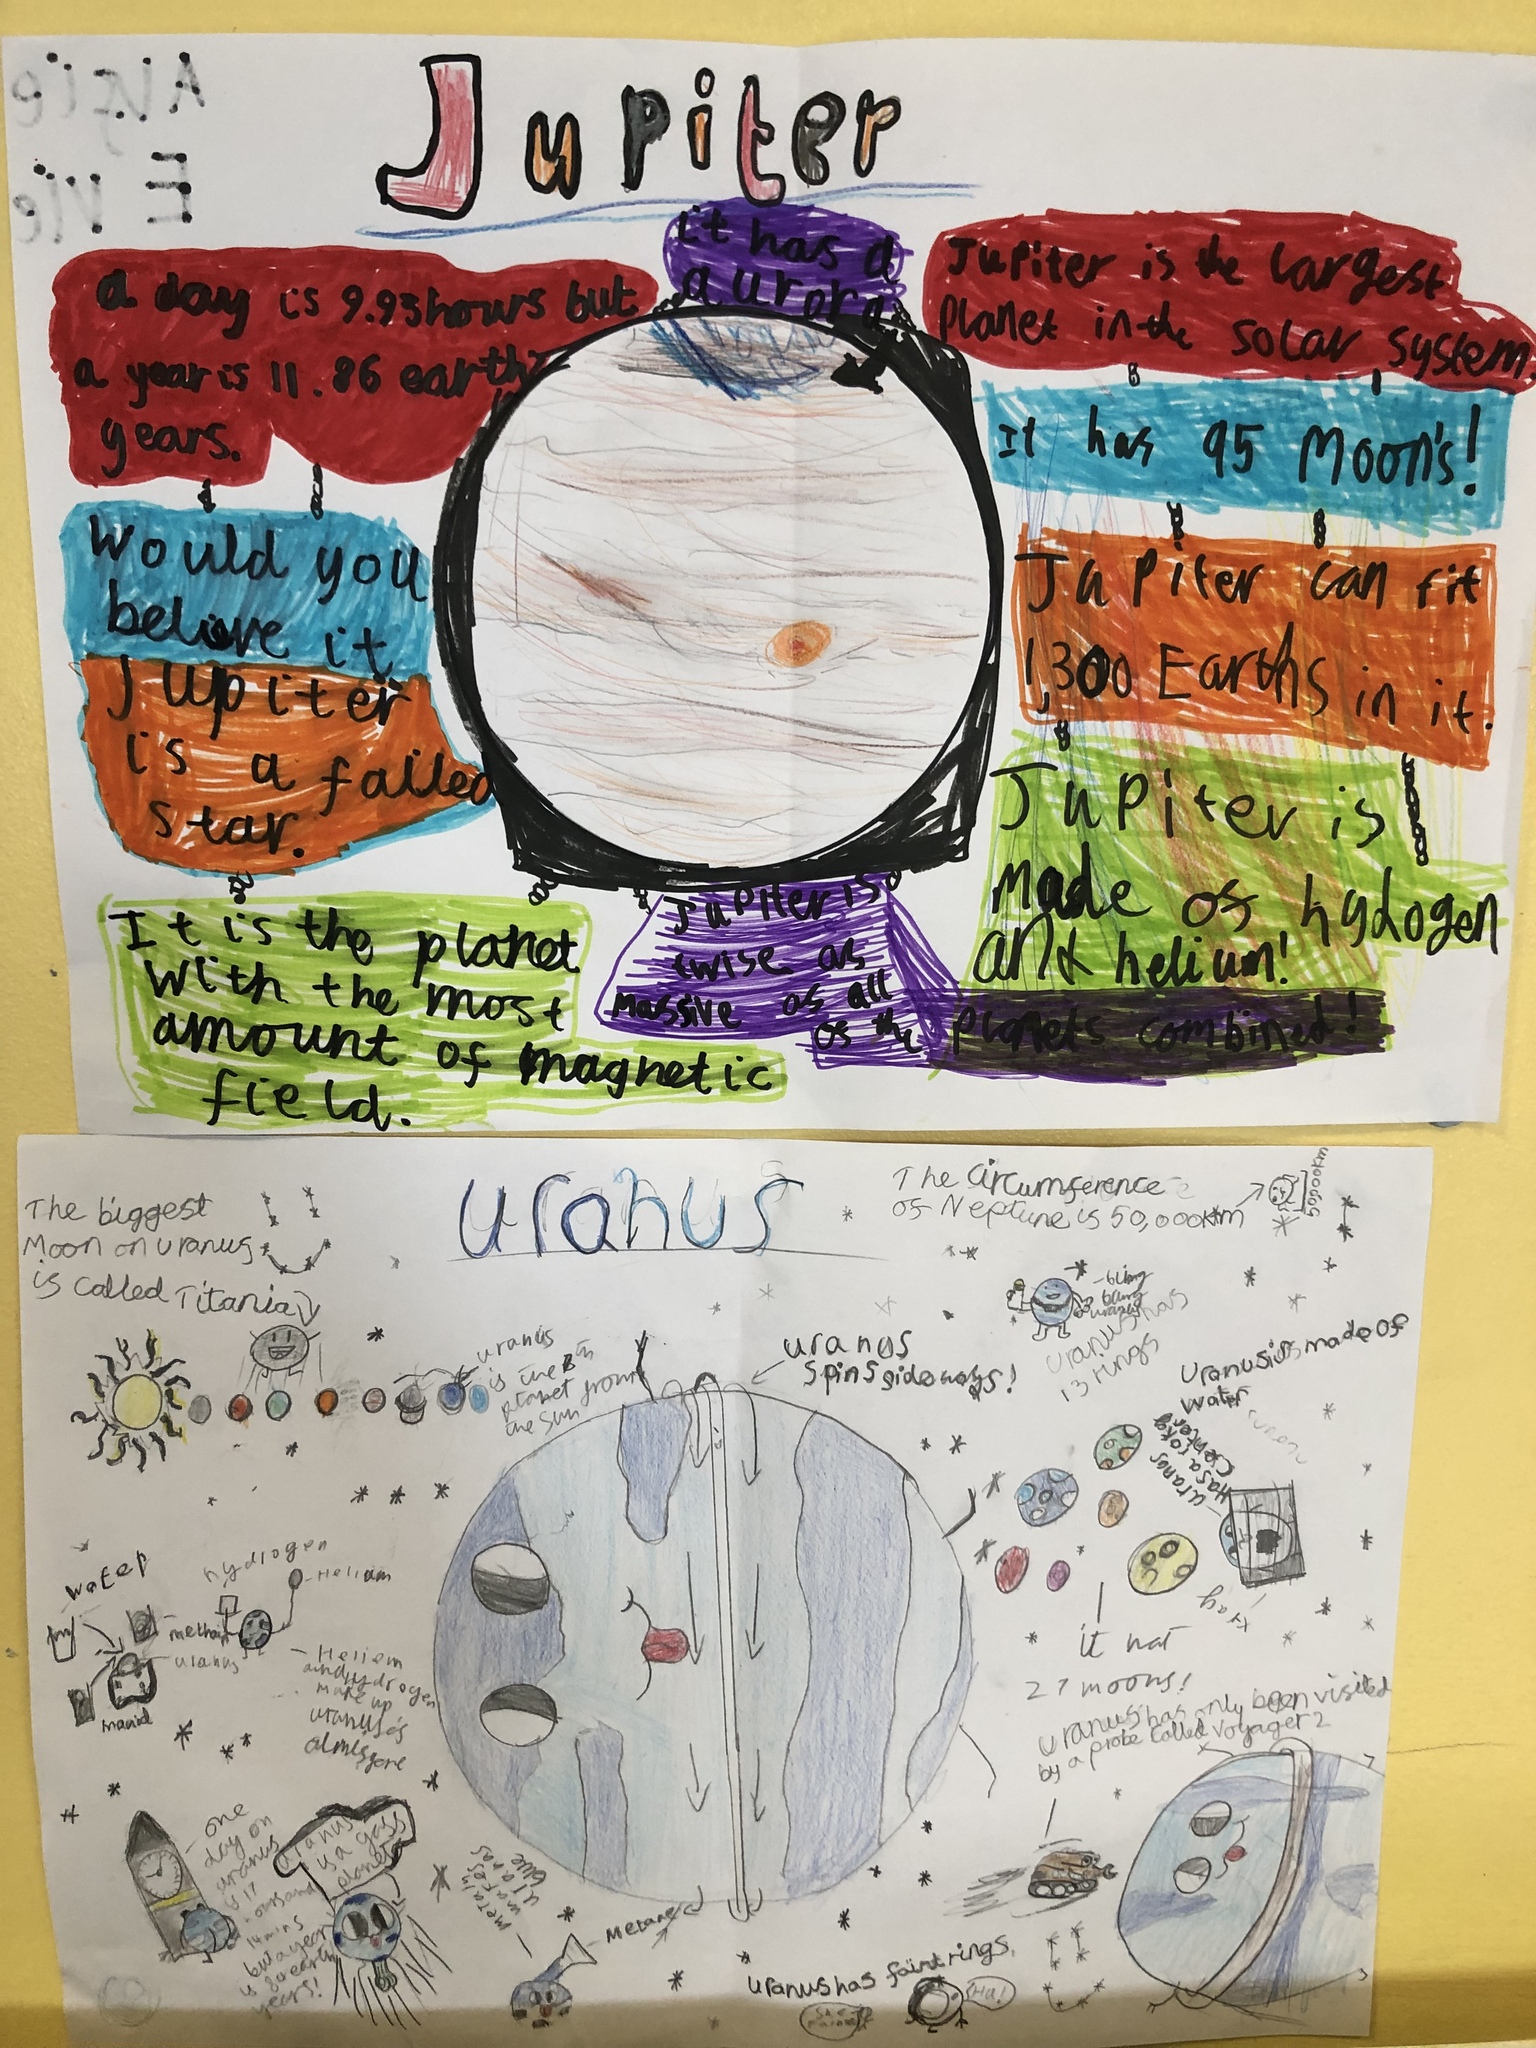 Alfie
Evie
Jupiter
it has a
aurora
a day is 9.93 hours but
a year is 11.86 earth
years.
Jupiter is the largest
Planet in the solar system.
It has 95 Moon's!
Would you
believe it
Jupiter
is a failed
star.
Jupiter can fit
1,300 Earths in it.
Jupiter is
made of hydogen
and helium!
It is the planet
with the most
amount of magnetic
field.
Jupiter is
twise as
massive as all
of the planets combined!
uranus
The biggest
Moon on uranus
is called Titania
The circumference
of Neptune is 50,000km
50000km
bling
bling
uranus has
13 rings
uranus
is the 8th
planet from
the sun
uranus
spins sideways!
Uranus is made of
water
uranos
has a roky
center
xray
it hat
27 moons!
water
hydrogen
Helium
uranus
Heliem
and hydrogen
make up
uranus's
uranus has only been visited
by a probe called voyager 2
one
day on
uranus
is 17
hours and
14 mins
but a year
is 84 earth
years!
uranus
is a gass
planet
metain
makes
uranus
blue
Metane
uranus has faint rings.
Ha!